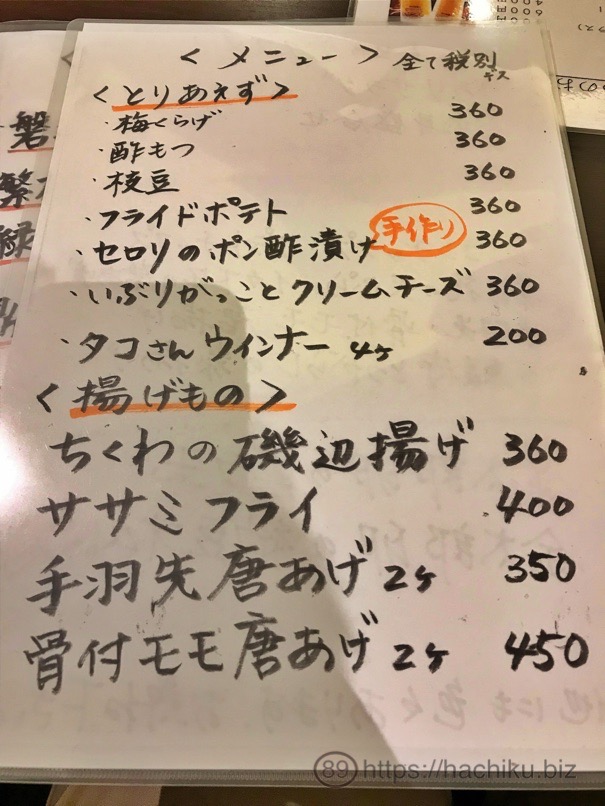 <メニュー> 全て税別です
<とりあえず>
・梅くらげ 360
・酢もつ 360
・枝豆 360
・フライドポテト 360
・セロリのポン酢漬け 手作り 360
・いぶりがっことクリームチーズ 360
・タコさんウィンナー 4ヶ 200
<揚げもの>
ちくわの磯辺揚げ 360
ササミフライ 400
手羽先唐あげ 2ヶ 350
骨付モモ唐あげ 2ヶ 450
89 https://hachiku.biz